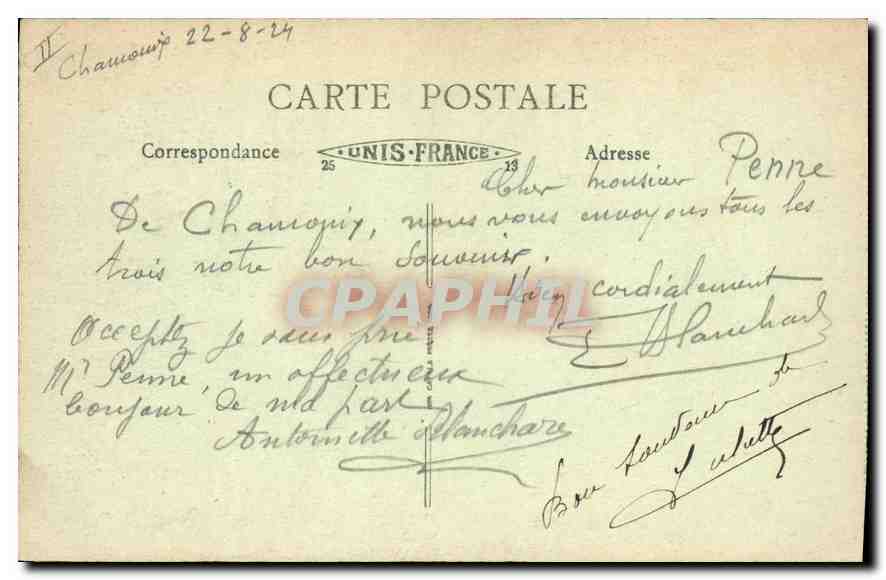 II
Chamonix 22-8-24
CARTE POSTALE
Correspondance
UNIS-FRANCE
25 13
Adresse
Cher monsieur Penne
De Chamonix, nous vous envoyons tous les
trois notre bon souvenir.
cordialement
E Blanchard
Acceptez je vous prie
Mr Penne, un affectueux
bonjour de ma part
Antoinette Blanchard
Bon souvenir de
CAPHIL